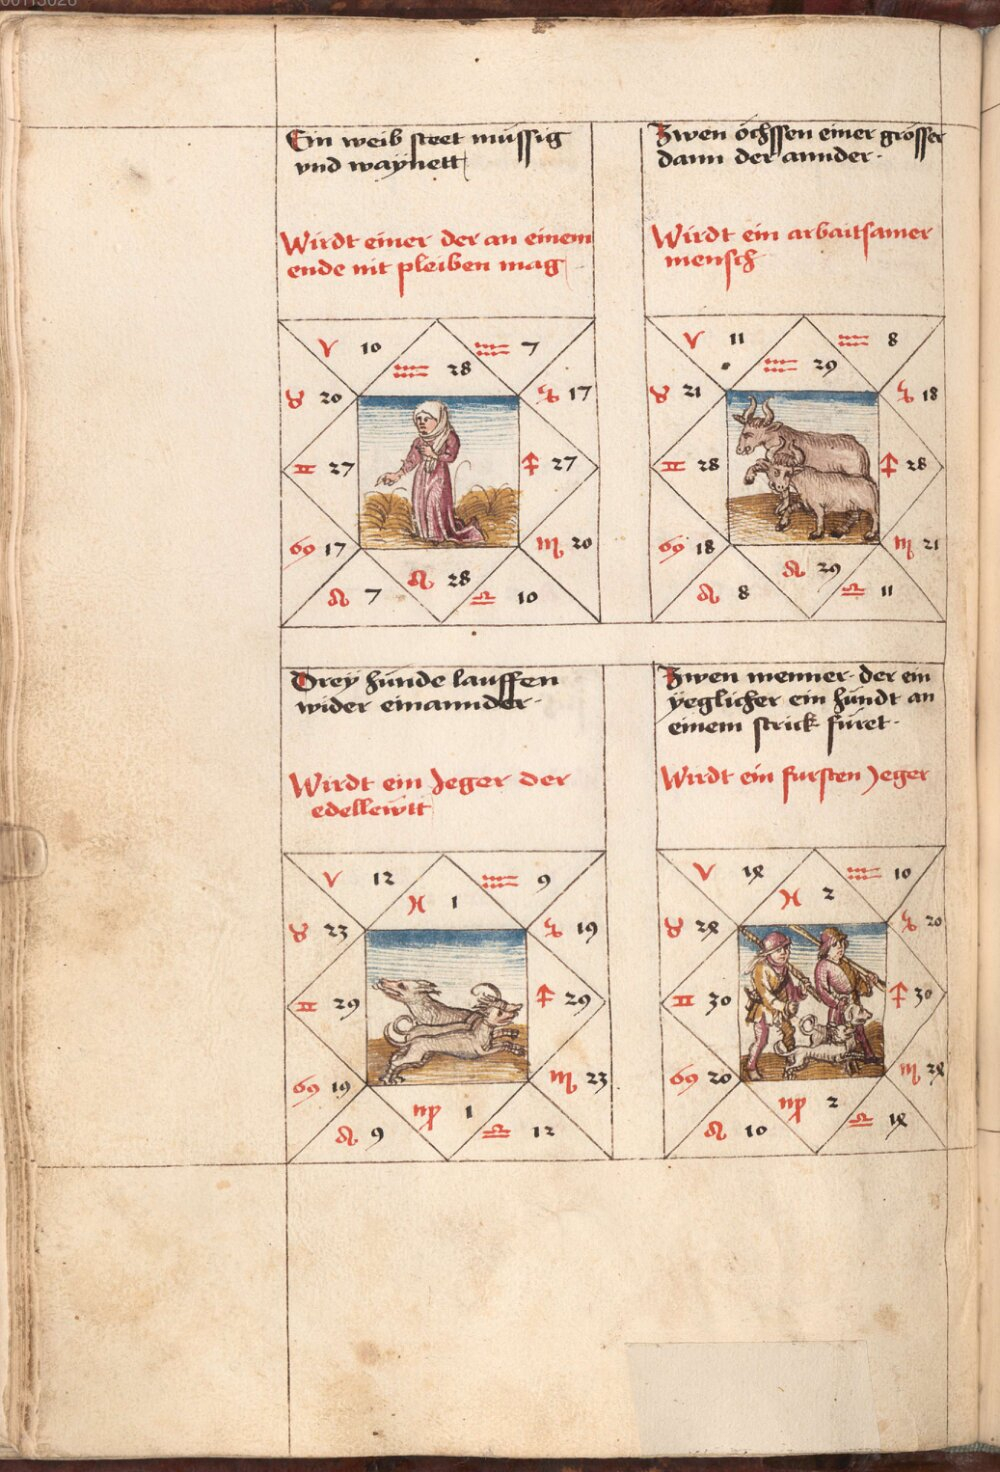 Ein weib steet müssig
vnd waynett
Wirdt einer der an einem
ende nit pleiben mag
♈ 10
♒ 28
♒ 7
♉ 20
♑ 17
♊ 27
♐ 27
♋ 17
♏ 20
♌ 7
♌ 28
♎ 10
Zwen öchssen einer grösser
dann der annder·
Wirdt ein arbaitsamer
mensch
♈ 11
♒ 29
♒ 8
♉ 21
♑ 18
♊ 28
♐ 28
♋ 18
♏ 21
♌ 8
♌ 29
♎ 11
Drey hünde lauffen
wider einannder·
Wirdt ein Jeger der
edellewtt
♈ 12
♓ 1
♒ 9
♉ 23
♑ 19
♊ 29
♐ 29
♋ 19
♏ 23
♌ 9
♍ 1
♎ 12
Zwen menner· der ein
yeglicher ein hündt an
einem strick füret·
Wirdt ein fursten Jeger
♈ 14
♓ 2
♒ 10
♉ 24
♑ 20
♊ 30
♐ 30
♋ 20
♏ 24
♌ 10
♍ 2
♎ 14